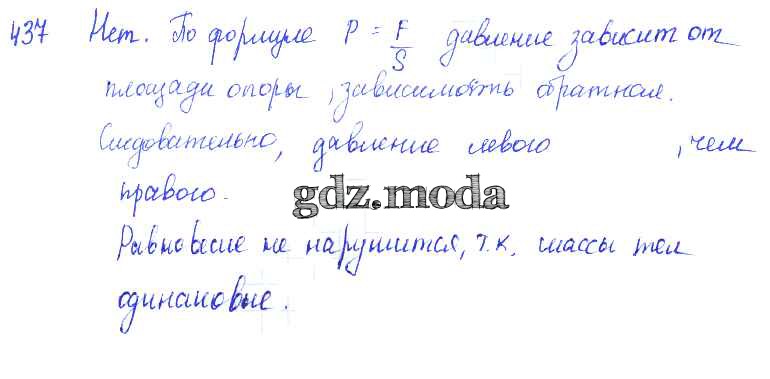 437 Нет. По формуле P = F/S давление зависит от
площади опоры, зависимость обратная.
Следовательно, давление левого , чем
правого.
gdz.moda
Равновесие не нарушится, т.к. массы тел
одинаковые.